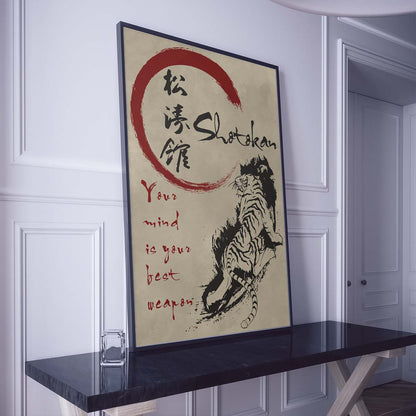 松
濤
館
Shotokan
Your
mind
is your
best
weapon